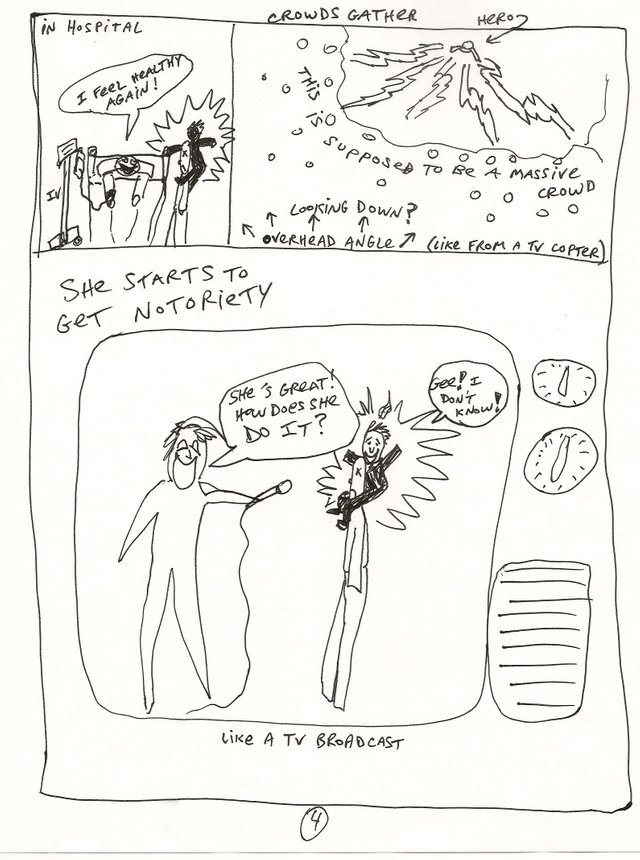 IN HOSPITAL
I FEEL HEALTHY
AGAIN!
IV
CROWDS GATHER
HERO?
THIS IS SUPPOSED TO BE A MASSIVE
CROWD
LOOKING DOWN?
OVERHEAD ANGLE
(LIKE FROM A TV COPTER)
SHE STARTS TO
GET NOTORIETY
SHE'S GREAT!
HOW DOES SHE
DO IT?
GEE! I
DON'T
KNOW!
K
LIKE A TV BROADCAST
4